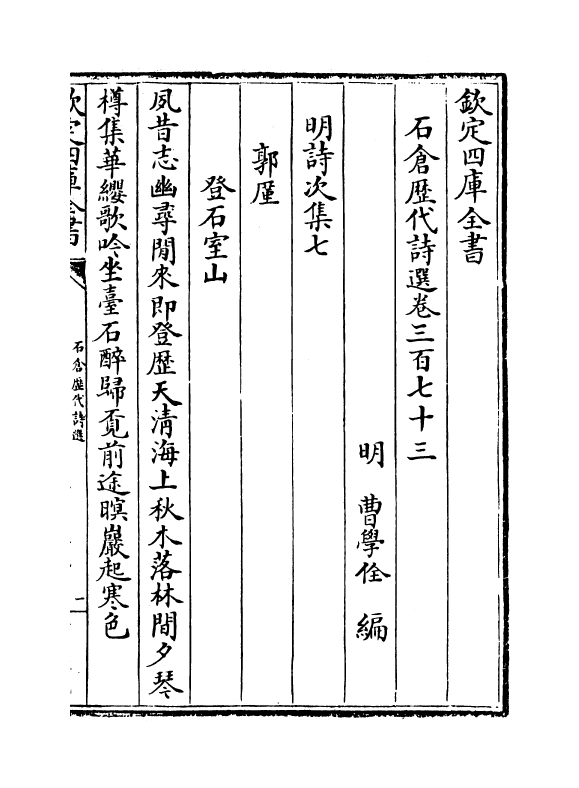 欽定四庫全書
石倉歴代詩選卷三百七十三
明　曹學佺　編
明詩次集七
郭厪
登石室山
夙昔志幽尋閒來即登歴天清海上秋木落林間夕琴
樽集華纓歌吟坐臺石醉歸覔前途暝巖起寒色
欽定四庫全書
石倉歴代詩選